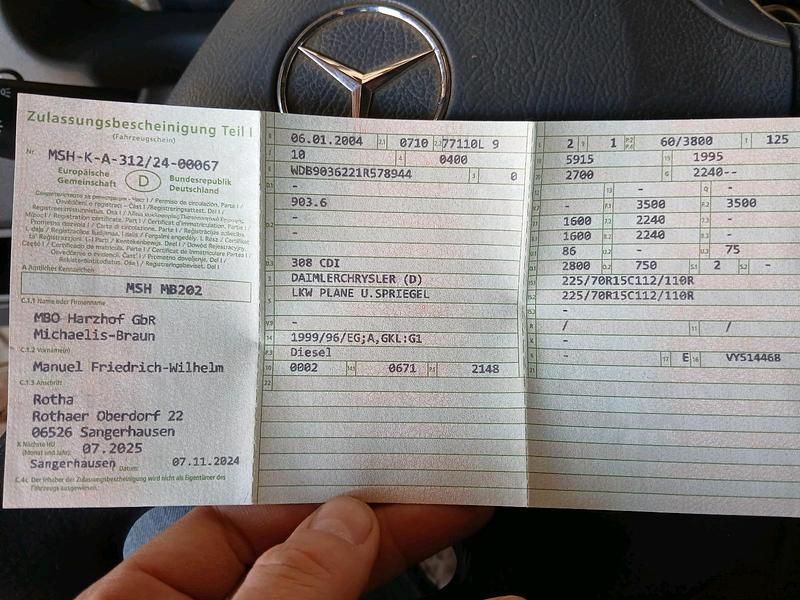 Zulassungsbescheinigung Teil I
(Fahrzeugschein)
Nr. MSH-K-A-312/24-00067
Europäische Gemeinschaft D Bundesrepublik Deutschland
A Amtliches Kennzeichen
MSH MB202
C.1.1 Name oder Firmenname
MBO Harzhof GbR
Michaelis-Braun
C.1.2 Vorname(n)
Manuel Friedrich-Wilhelm
C.1.3 Anschrift
Rotha
Rothaer Oberdorf 22
06526 Sangerhausen
Nächste HU
(Monat und Jahr) 07.2025
Sangerhausen Datum: 07.11.2024
C.4c Der Inhaber der Zulassungsbescheinigung wird nicht als Eigentümer des
Fahrzeugs ausgewiesen.
B 06.01.2004 2.1 0710 2.2 77110L 9
10 4 0400
WDB9036221R578944 3 0
-
903.6
-
-
D.3 308 CDI
DAIMLERCHRYSLER (D)
5 LKW PLANE U.SPRIEGEL
V.9 -
14 1999/96/EG;A,GKL:G1
P.3 Diesel
10 0002 14.1 0671 P.1 2148
22
2 9 1 P.2 P.4 60/3800 T 125
5915 19 1995
2700 G 2240--
13 - Q -
- 3500 3500
1600 2240 -
1600 2240 -
86 U.2 - U.3 75
2800 O.2 750 S.1 2 S.2 -
225/70R15C112/110R
225/70R15C112/110R
-
R / 11 /
K -
- 17 E 16 VY514468
21